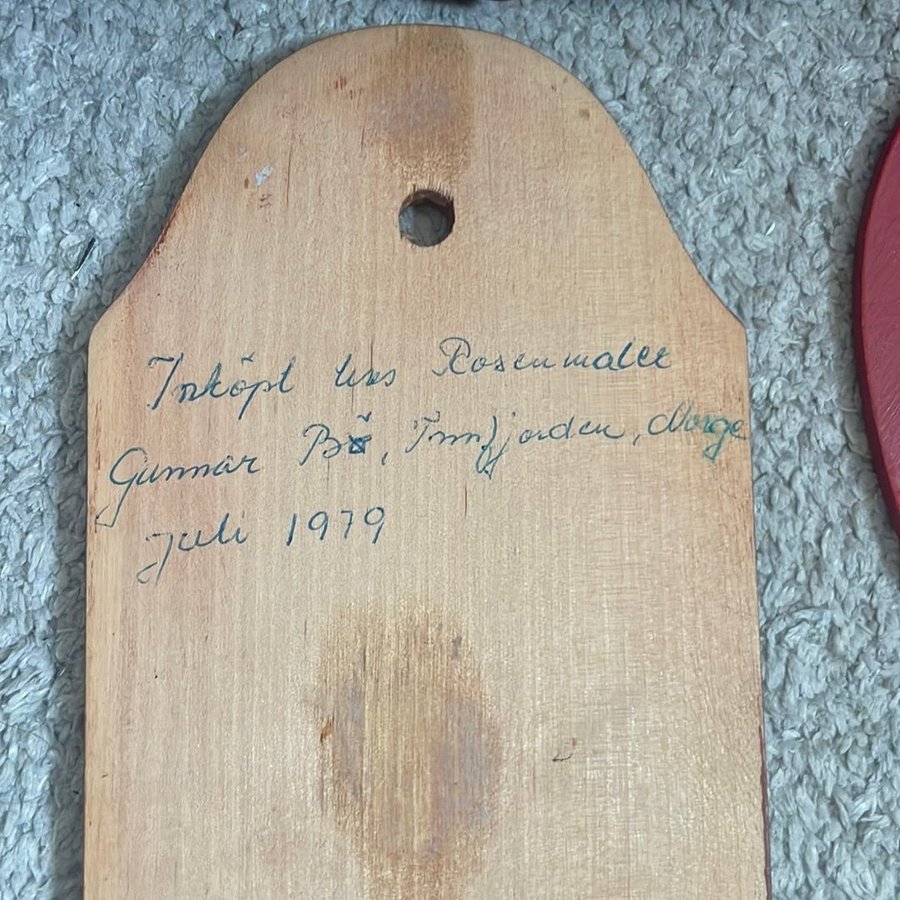 Inköpt hos Rosenmaler
Gunnar Bö, Innfjorden, Norge
Juli 1979